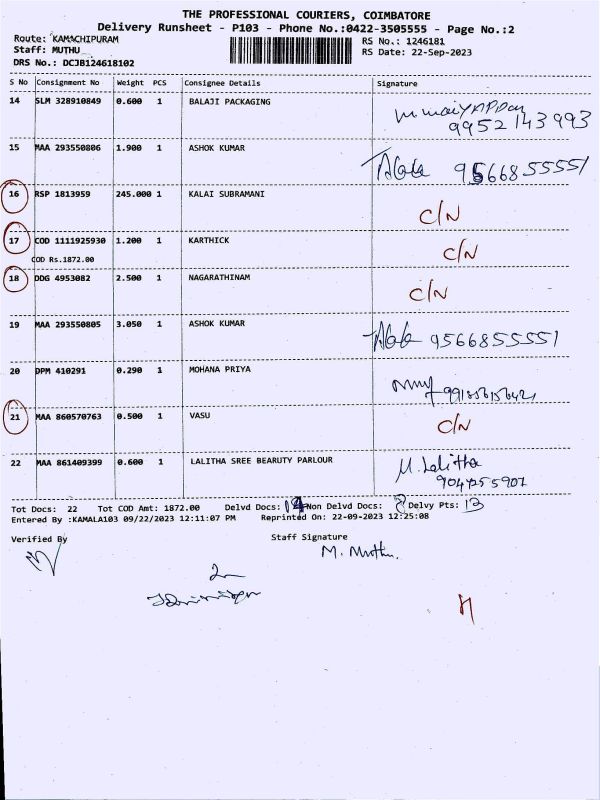 THE PROFESSIONAL COURIERS, COIMBATORE
Delivery Runsheet - P103 - Phone No.:0422-3505555 - Page No.:2
Route: KAMACHIPURAM RS No.: 1246181
Staff: MUTHU RS Date: 22-Sep-2023
DRS No.: DCJB124618102
S No Consignment No Weight PCS Consignee Details Signature
14 SLM 328910849 0.600 1 BALAJI PACKAGING
9952143993
15 MAA 293550806 1.900 1 ASHOK KUMAR 9566855551
16 RSP 1813959 245.000 1 KALAI SUBRAMANI C/N
17 COD 1111925930 1.200 1 KARTHICK C/N
COD Rs.1872.00
18 DDG 4953082 2.500 1 NAGARATHINAM C/N
19 MAA 293550805 3.050 1 ASHOK KUMAR 9566855551
20 DPM 410291 0.290 1 MOHANA PRIYA
21 MAA 860570763 0.500 1 VASU C/N
22 MAA 861409399 0.600 1 LALITHA SREE BEARUTY PARLOUR M. Lalitha
Tot Docs: 22 Tot COD Amt: 1872.00 Delvd Docs: Non Delvd Docs: Delvy Pts: 13
Entered By :KAMALA103 09/22/2023 12:11:07 PM Reprinted On: 22-09-2023 12:25:08
Verified By Staff Signature
M. Muthu.